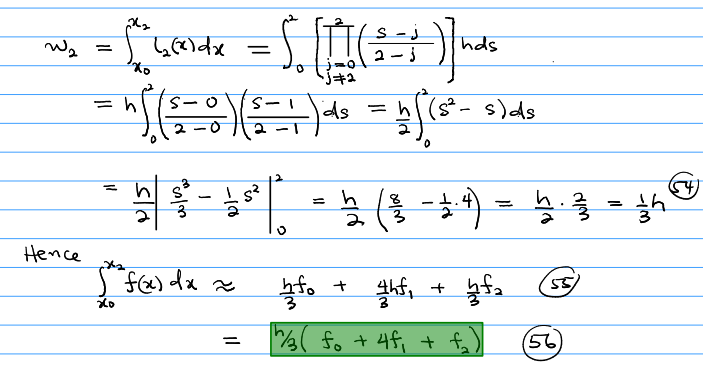 w₂ = ∫_{x₀}^{x₂} l₂(x)dx = ∫₀² [ ∏_{j=0, j≠2}^{2} ( (s-j)/(2-j) ) ] hds
= h ∫₀² ( (s-0)/(2-0) ) ( (s-1)/(2-1) ) ds = h/2 ∫₀² (s² - s)ds
= h/2 | s³/3 - 1/2 s² |₀² = h/2 ( 8/3 - 1/2.4 ) = h/2 · 2/3 = 1/3 h (54)
Hence
∫_{x₀}^{x₂} f(x) dx ≈ h/3 f₀ + 4/3 hf₁ + h/3 f₂ (55)
= h/3( f₀ + 4f₁ + f₂) (56)